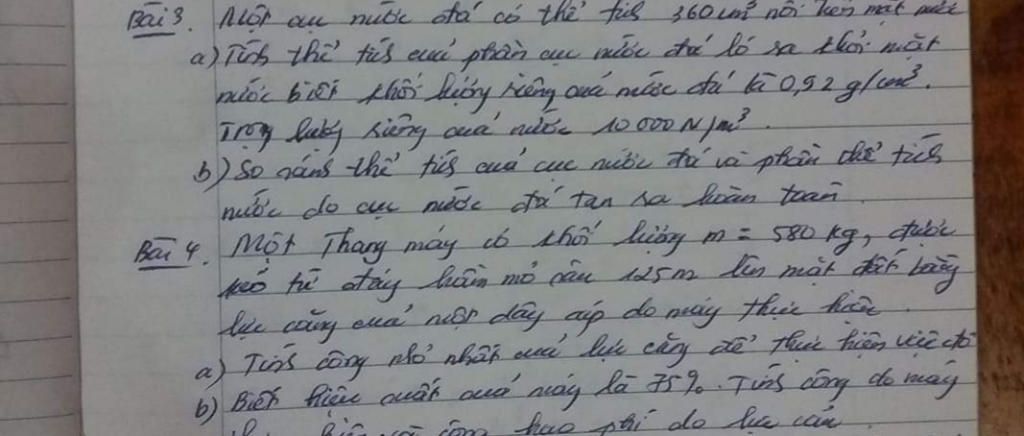 Bài 3. Một cục nước đá có thể tích 360cm³ nổi trên mặt nước
a) Tính thể tích của phần cục nước đá ló ra khỏi mặt
nước biết khối lượng riêng của nước đá là 0,92 g/cm³.
Trọng lượng riêng của nước 10000N/m³.
b) So sánh thể tích của cục nước đá và phần thể tích
nước do cục nước đá tan ra hoàn toàn
Bài 4. Một Thang máy có khối lượng m = 580 kg, được
kéo từ đáy hầm mỏ sâu 125m lên mặt đất bằng
lực căng của một dây cáp do máy thực hiện.
a) Tính công nhỏ nhất của lực căng để thực hiện việc đó
b) Biết hiệu suất của máy là 75%. Tính công do máy
thực hiện và công hao phí do lực cản